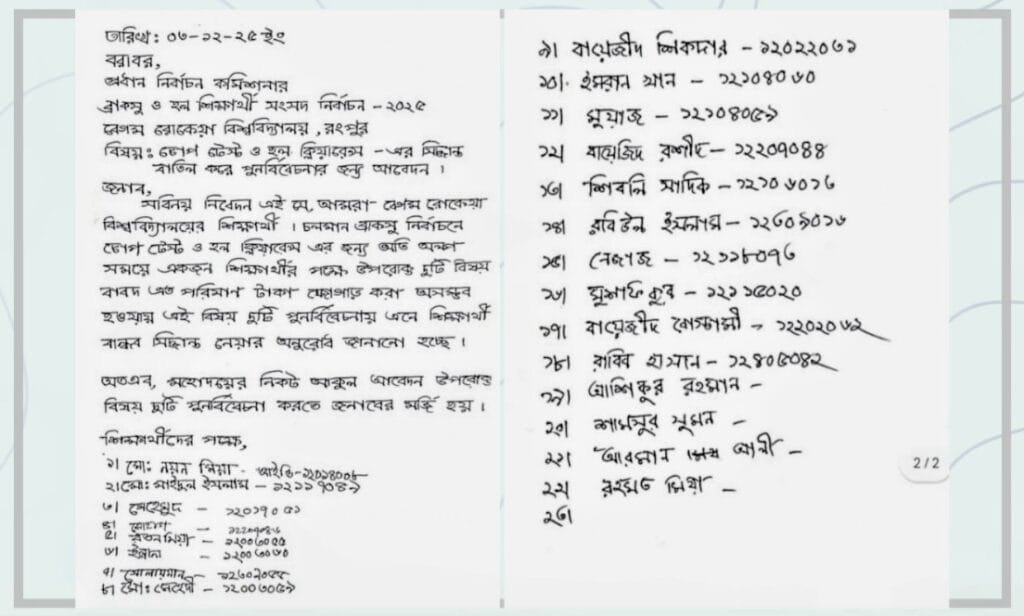 তারিখ: ০৩-১২-২৫ ইং
বরাবর,
প্রধান নির্বাচন কমিশনার
ব্রাকসু ও হল শিক্ষার্থী সংসদ নির্বাচন - ২০২৫
বেগম রোকেয়া বিশ্ববিদ্যালয়, রংপুর
বিষয়: ডোপ টেস্ট ও হল ক্লিয়ারেন্স -এর সিদ্ধান্ত
বাতিল করে পুনর্বিবেচনার জন্য আবেদন ।
জনাব,
সবিনয় নিবেদন এই যে, আমরা বেগম রোকেয়া
বিশ্ববিদ্যালয়ের শিক্ষার্থী । চলমান ব্রাকসু নির্বাচনে
ডোপ টেস্ট ও হল ক্লিয়ারেন্স এর জন্য অতি অল্প
সময়ে একজন শিক্ষার্থীর পক্ষে উপরোক্ত দুটি বিষয়
বাবদ এত পরিমাণ টাকা জোগাড় করা অসম্ভব
হওয়ায় এই বিষয় দুটি পুনর্বিবেচনায় এনে শিক্ষার্থী
বান্ধব সিদ্ধান্ত নেয়ার অনুরোধ জানানো হচ্ছে ।
অতএব, মহোদয়ের নিকট আকুল আবেদন উপরোক্ত
বিষয় দুটি পুনর্বিবেচনা করতে জনাবের মর্জি হয় ।
শিক্ষার্থীদের পক্ষে,
১। মো: নয়ন মিয়া - আইডি-
২। মো: সাইদুল ইসলাম - ১২১১৭০৪৯
৩। মেহেমুদ - ১২০১৭০৫১
৪।
৫। রতন মিয়া - ১২০০৬০৫৫
৬। - ১২০০৬০৬০
৭। সোলায়মান - ১২৬০২০৫৫
৮। মো: মেহেদী - ১২০০৬০৫৯
৯। বায়েজীদ শিকদার - ১২০২২০৬১
১০। ইমরান খান - ১২১০৪০৬০
১১। মুয়াজ - ১২১০৪০৫৯
১২। বায়েজিদ রশীদ - ১২২০৭০৪৪
১৩। শিবলি সাদিক - ১২১০৬০১৬
১৪। রবিউল ইসলাম - ১২৬০৯০১৬
১৫। - ১২১১৮০৭৬
১৬। মুশফিকুর - ১২১১৫০২০
১৭। বায়েজীদ বোস্তামী - ১২২০২০৬২
১৮। রাবিব হাসান - ১২৪০৫০৪২
১৯। আশিকুর রহমান -
২০। শামসুর সুমন -
২১। আরমান শেখ আলী -
২২। রহমত মিয়া -
২৩।
2/2